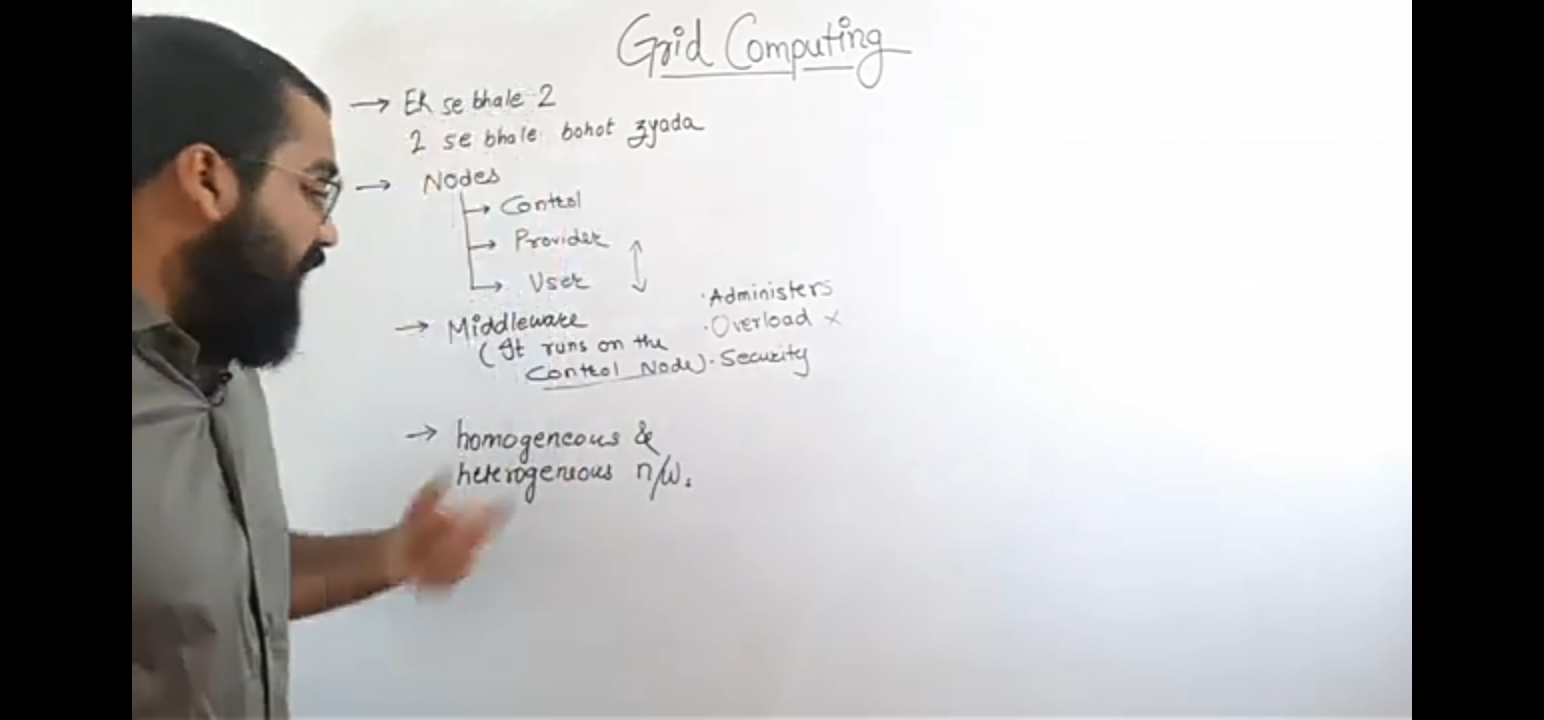 Grid Computing
→ Ek se bhale 2
2 se bhale bohot zyada
→ Nodes
→ Control
→ Provider
→ User
→ Middleware
(It runs on the
Control Node)
· Administers
· Overload ×
· Security
→ homogeneous &
heterogeneous n/w.